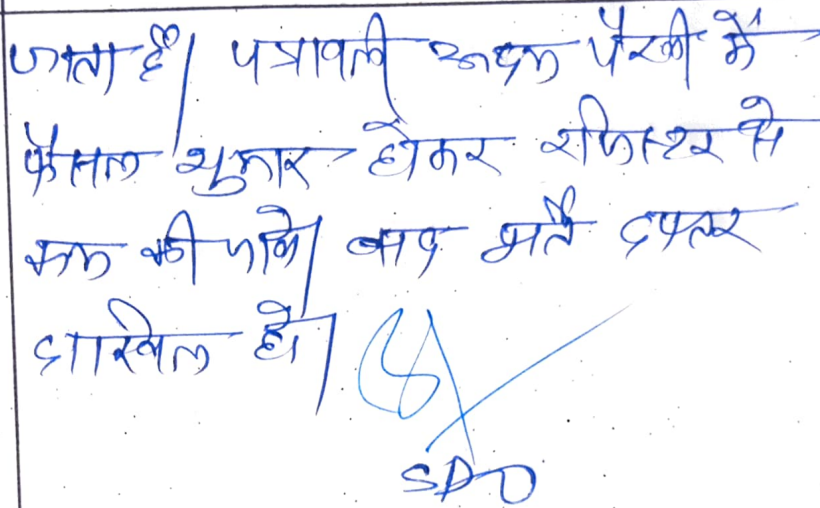 जाता है। पत्रावली अदम पैरवी में
फैसल शुमार होकर रजिस्टर से
कम की जावे। बाद भर्ती दफ्तर
दाखिल हो।
SDO